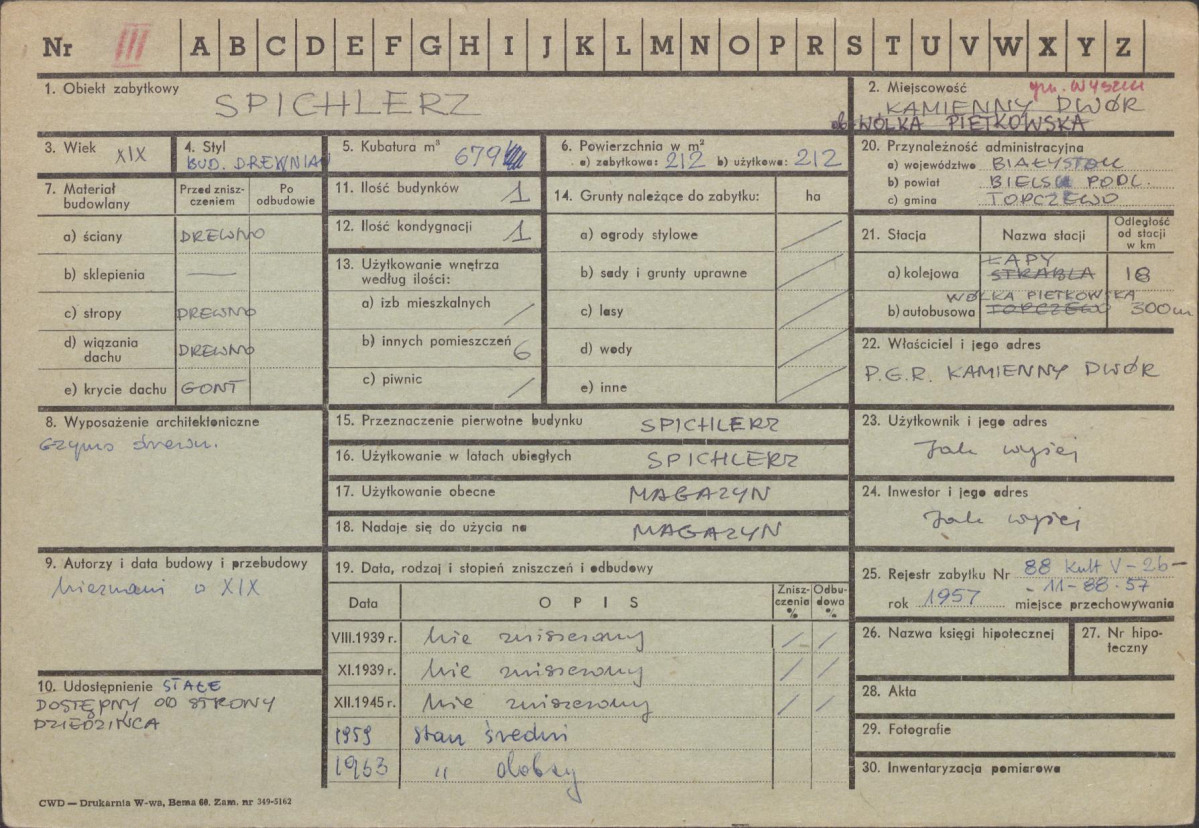 Nr III A B C D E F G H I J K L M N O P R S T U V W X Y Z
1. Obiekt zabytkowy SPICHLERZ
2. Miejscowość gm. WYSZKI
KAMIENNY DWÓR
WÓLKA PIETKOWSKA
3. Wiek XIX
4. Styl
BUD. DREWNIAN
5. Kubatura m³ 679
6. Powierzchnia w m²
a) zabytkowa: 212 b) użytkowa: 212
20. Przynależność administracyjna
a) województwo BIAŁYSTOK
b) powiat BIELSK PODL.
c) gmina TOPCZEWO
7. Materiał budowlany
Przed znisz-
czeniem
Po
odbudowie
a) ściany DREWNO
b) sklepienia —
c) stropy DREWNO
d) wiązania
dachu DREWNO
e) krycie dachu GONT
11. Ilość budynków 1
12. Ilość kondygnacji 1
13. Użytkowanie wnętrza
według ilości:
a) izb mieszkalnych /
b) innych pomieszczeń 6
c) piwnic /
14. Grunty należące do zabytku: ha
a) ogrody stylowe /
b) sady i grunty uprawne /
c) lasy /
d) wody /
e) inne /
21. Stacja Nazwa stacji
Odległość
od stacji
w km
ŁAPY
a) kolejowa STRABLA 18
WÓLKA PIETKOWSKA
b) autobusowa TOPCZEWO 300m
22. Właściciel i jego adres
P.G.R. KAMIENNY DWÓR
8. Wyposażenie architektoniczne
Gzyms drewn.
15. Przeznaczenie pierwotne budynku SPICHLERZ
16. Użytkowanie w latach ubiegłych SPICHLERZ
17. Użytkowanie obecne MAGAZYN
18. Nadaje się do użycia na MAGAZYN
23. Użytkownik i jego adres
Jak wyżej
24. Inwestor i jego adres
Jak wyżej
9. Autorzy i data budowy i przebudowy
Nieznani XIX
19. Data, rodzaj i stopień zniszczeń i odbudowy
Data OPIS
Znisz-
czenia
%
Odbu-
dowa
%
VIII.1939 r. Nie zniszczony / /
XI.1939 r. Nie zniszczony / /
XII.1945 r. Nie zniszczony / /
1959 Stan średni
1963 " dobry
25. Rejestr zabytku Nr 88 Kult V-2b-
-11-88-57
rok 1957 miejsce przechowywania
26. Nazwa księgi hipotecznej
27. Nr hipo-
teczny
10. Udostępnienie STAŁE
DOSTĘPNY OD STRONY
DZIEDZIŃCA
28. Akta
29. Fotografie
30. Inwentaryzacja pomiarowa
CWD — Drukarnia W-wa, Bema 60. Zam. nr 349-5162